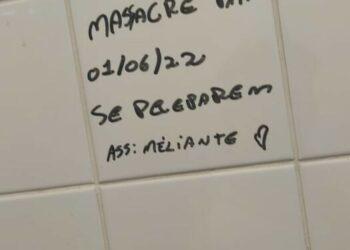 MASSACRE
01/06/22
SE PREPAREM
ASS: MELIANTE